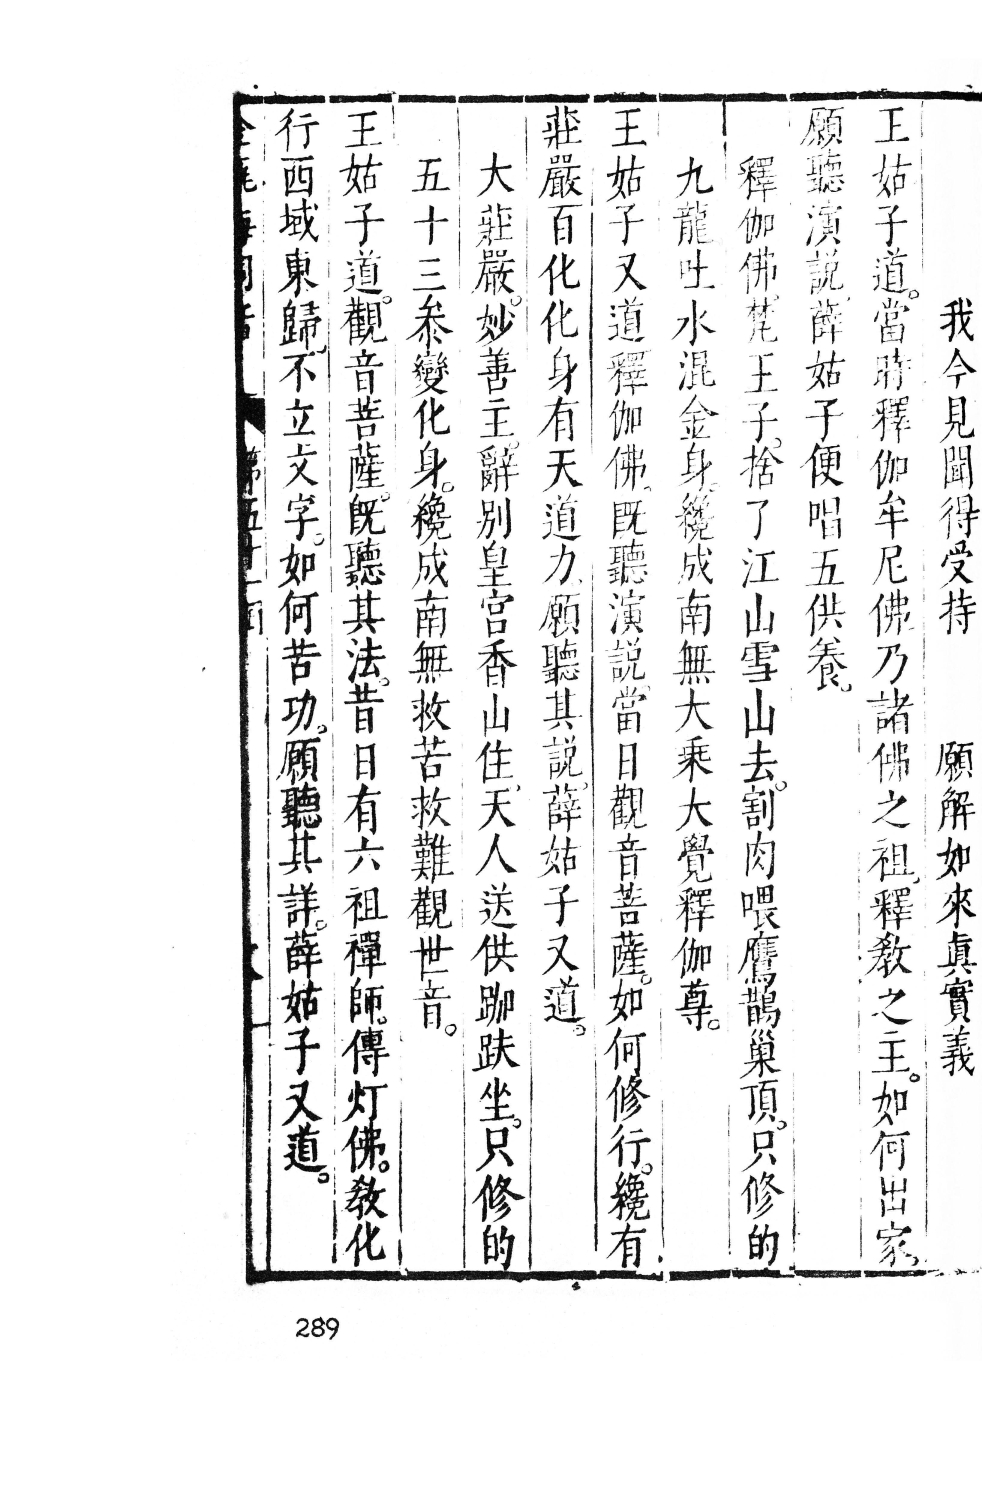 我今見聞得受持　願解如來真實義
王姑子道。當時釋伽牟尼佛乃諸佛之祖、釋教之主。如何出家、
願聽演說、薛姑子便唱五供養、
釋伽佛。梵王子。捨了江山雪山去。割肉喂鷹鵲巢頂。只修的
九龍吐水混金身。纔成南無大乘大覺釋伽尊。
王姑子又道釋伽佛、既聽演說。當日觀音菩薩。如何修行。纔有
莊嚴百化化身有天道力、願聽其說、薛姑子又道。
大莊嚴。妙善主。辭別皇宮香山住、天人送供跏趺坐。只修的
五十三叅變化身。纔成南無救苦救難觀世音。
王姑子道。觀音菩薩。旣聽其法。昔日有六祖禪師。傳灯佛。教化
行西域東歸、不立文字。如何苦功。願聽其詳。薛姑子又道。
第五十一回
289